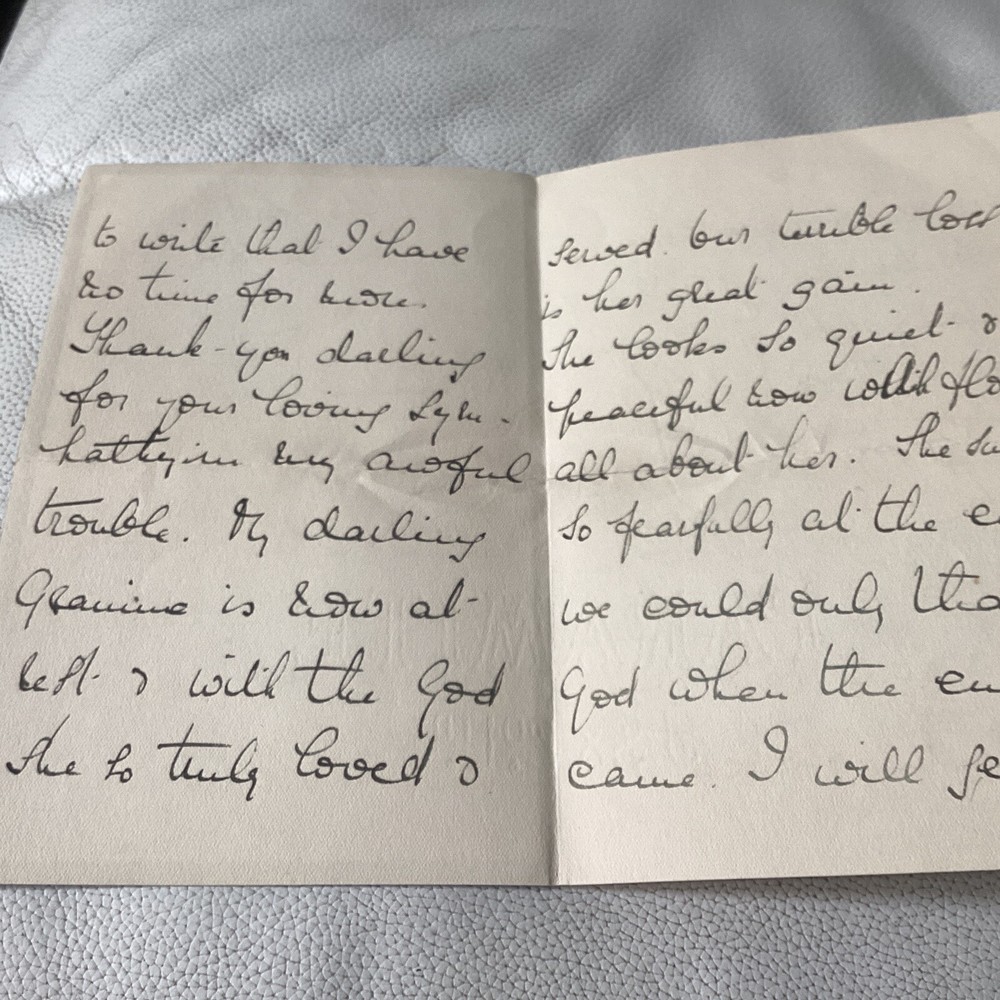 to write that I have
no time for more.
Thank-you darling
for your loving Sym-
pathy in my awful
trouble. My darling
Grannie is now at-
rest & with the God
She so truly loved &
served. Our terrible loss
is her great gain.
She looks so quiet &
peaceful now with flo
all about her. She su
so fearfully at the e
we could only tha
God when the en
came. I will se